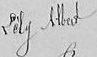 Lély Albert